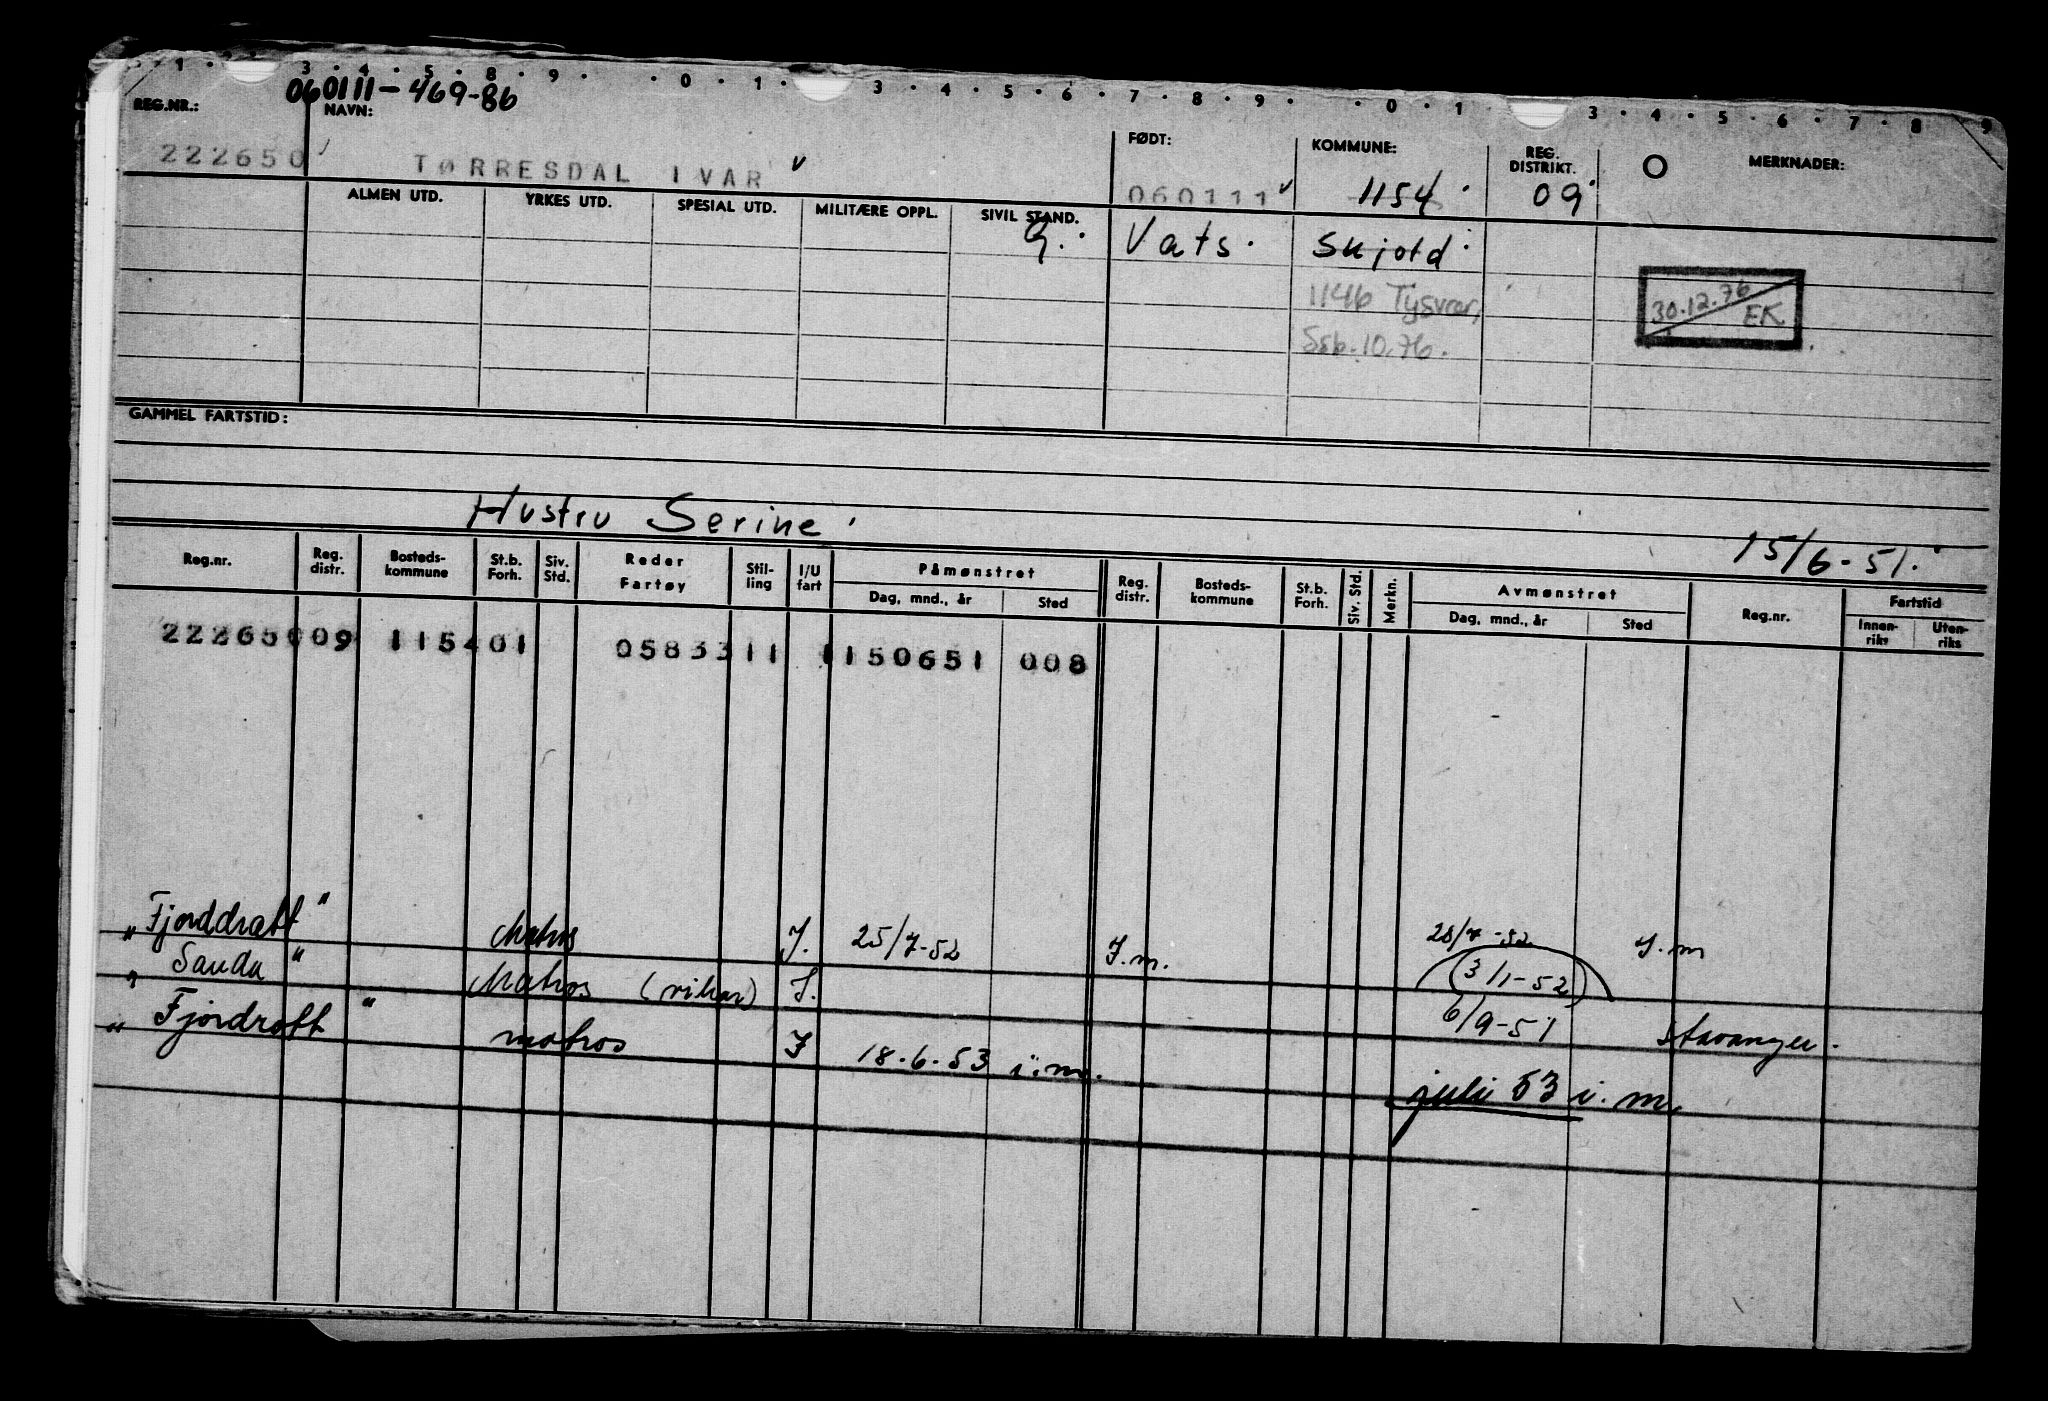 1 . 3 . 4 . 5 . 8 . 9 . . 0 . 1 . 3 . 4 . 5 . 6 . 7 . 8 . 9 . . 0 . 1 3 . 4 . 5 . 6 . 7 . 8 . 9
060111-469-86
REG.NR.: NAVN: FØDT: KOMMUNE: REG. DISTRIKT. MERKNADER:
222650 TØRRESDAL IVAR 060111 1154 09
ALMEN UTD. YRKES UTD. SPESIAL UTD. MILITÆRE OPPL. SIVIL STAND.
G. Vats. Skjold
1146 Tysvær,
Ssb.10.76.
30.12.76
EK
GAMMEL FARTSTID:
Hustru Serine
15/6-51.
Reg.nr. Reg. distr. Bosteds-kommune St.b. Forh. Siv. Std. Reder Fartøy Stil-ling I/U fart Påmønstret Reg. distr. Bosteds-kommune St.b. Forh. Siv. Std. Merkn. Avmønstret Reg.nr. Fartstid
Dag, mnd., år Sted Dag, mnd., år Sted Innen-riks Uten-riks
222650 09 1154 01 05833 11 1 150651 008
"Fjorddrott" Matros J. 25/7-52 J.m. 28/7-52 J.m
"Sauda" Matros (vikar) J. (3/1-52)
6/9-51 Stavanger.
"Fjordrott" matros J 18.6.53 i.m. juli 53 i.m.